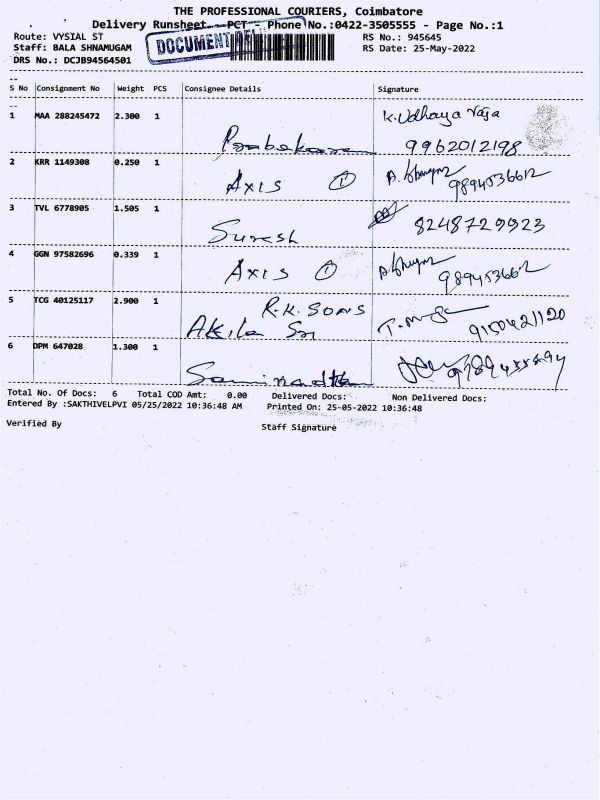 THE PROFESSIONAL COURIERS, Coimbatore
Delivery Runsheet - PCT - Phone No.:0422-3505555 - Page No.:1
Route: VYSIAL ST
RS No.: 945645
Staff: BALA SHNAMUGAM
DOCUMENT
RS Date: 25-May-2022
DRS No.: DCJB94564501
S No Consignment No Weight PCS Consignee Details Signature
1 MAA 288245472 2.300 1 Prabakaran K. Udhaya raja
9962012198
2 KRR 1149308 0.250 1 AXIS 1
9894536612
3 TVL 6778905 1.505 1 Suresh 8248729923
4 GGN 97582696 0.339 1 AXIS 1
5 TCG 40125117 2.900 1 R.K. SONS
Akila Sri 9150421120
6 DPM 647028 1.300 1
Total No. Of Docs: 6 Total COD Amt: 0.00 Delivered Docs: Non Delivered Docs:
Entered By :SAKTHIVELPVI 05/25/2022 10:36:48 AM Printed On: 25-05-2022 10:36:48
Verified By Staff Signature